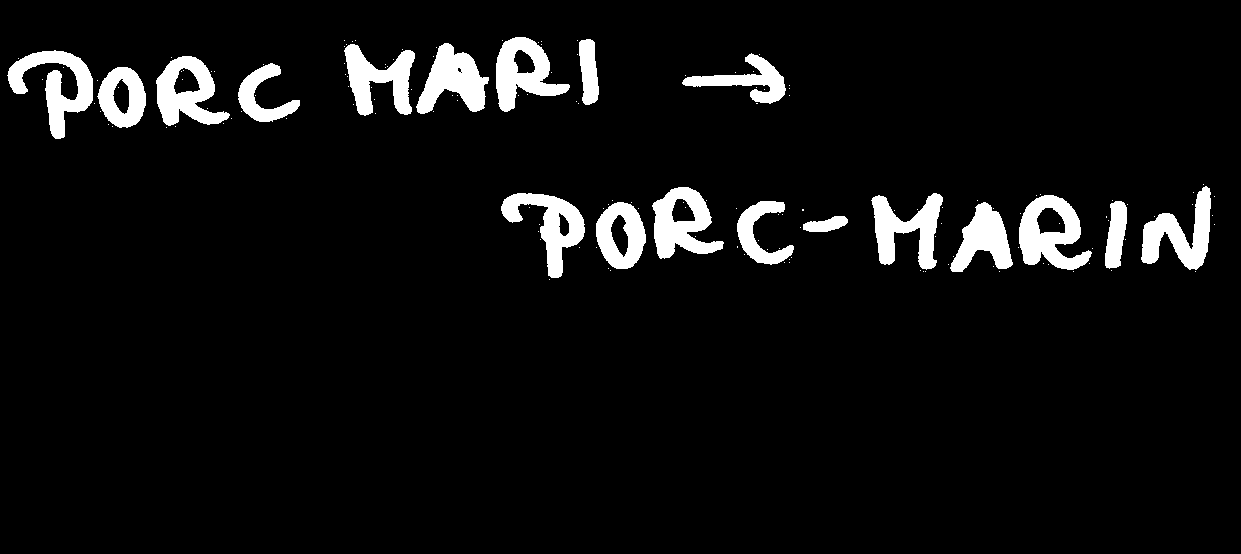 PORC MARI →
PORC-MARIN